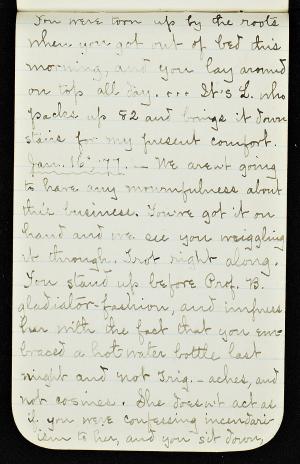 You were torn up by the roots
when you got out of bed this
morning, and you lay around
on top all day. ... It's L. who
packs up 82 and brings it down
stairs for my present comfort.
Jan. 16. '77. — We aren't going
to have any mournfulness about
this business. You've got it on
hand and we see you wriggling
it through. Trot right along.
You stand up before Prof. B.
gladiator-fashion, and impress
her with the fact that you em-
braced a hot water bottle last
night and not Trig. - aches, and
not cosines. She doesn't act as
if you were confessing incendiar-
ism to her, and you sit down,